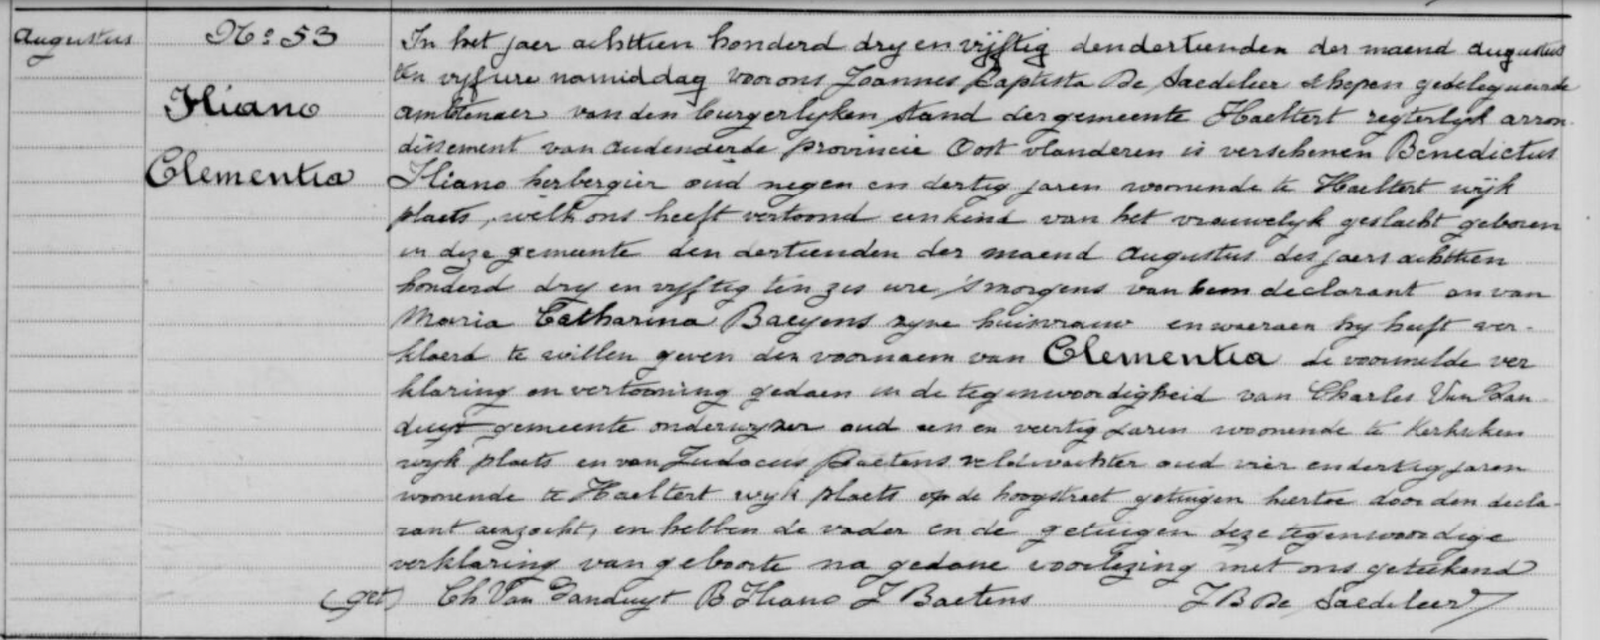 Augustus
No 53
Iliano
Clementia
In het jaer achttien honderd dry en vijftig den dertienden der maend augustus
ten vyf ure namiddag voor ons Joannes Baptista De Saedeleer schepen gedelegueerde
ambtenaer van den burgerlyken stand der gemeente Haeltert regterlyk arron-
dissement van audenaerde provincie Oost vlanderen is verschenen Benedictus
Iliano herbergier oud negen en dertig jaren woonende te Haeltert wijk
plaets, welk ons heeft vertoond een kind van het vrouwelyk geslacht geboren
in deze gemeente den dertienden der maend Augustus des jaers achttien
honderd dry en vyftig ten zes ure 'smorgens van hem declarant en van
Maria Catharina Baeyens zyne huisvrouw en waeraen hy heeft ver-
klaerd te willen geven den voornaem van Clementia de voormelde ver
klaring en vertooning gedaen in de tegenwoordigheid van Charles Van
gemeente onderwyzer oud een en veertig jaren woonende te Kerkxken
wyk plaets en van Judocus Baetens veldwachter oud vier en dertig jaren
woonende te Haeltert wyk plaets op de hoogstraet getuigen hiertoe door den decla-
rant aenzocht, en hebben de vader en de getuigen deze tegenwoordige
verklaring van geboorte na gedane voorlezing met ons geteekend
(get) Ch Van B Iliano J Baetens J B De Saedeleer